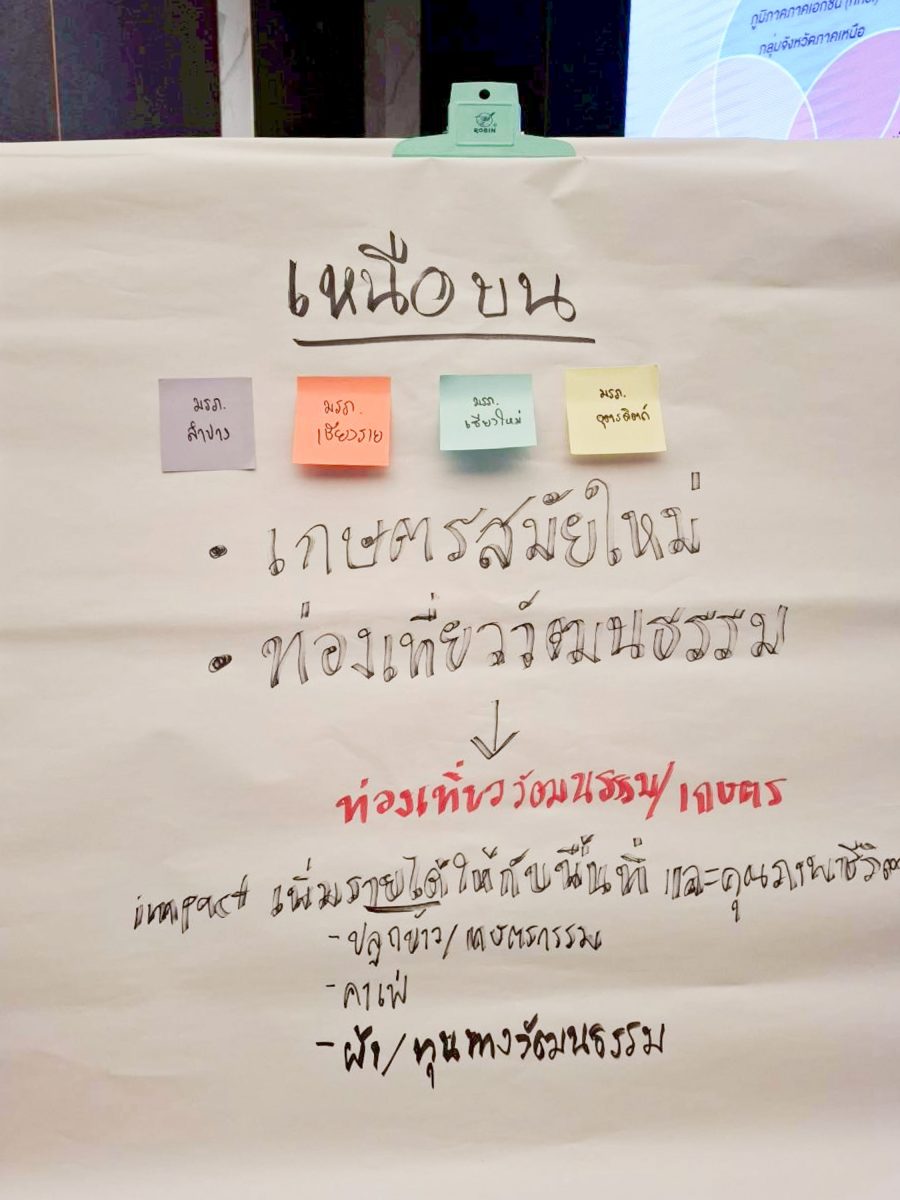 ภูมิภาคภาคเอกชน
กลุ่มจังหวัดภาคเหนือ
ROBIN
เหนือบน
มรภ.
ลำปาง
มรภ.
เชียงราย
มรภ.
เชียงใหม่
มรภ.
อุตรดิตถ์
• เกษตรสมัยใหม่
• ท่องเที่ยววัฒนธรรม
ท่องเที่ยววัฒนธรรม/เกษตร
impact เพิ่มรายได้ให้กับพื้นที่ และคุณภาพชีวิต
- ปลูกข้าว/เกษตรกรรม
- คาเฟ่
- ผ้า/ทุนทางวัฒนธรรม